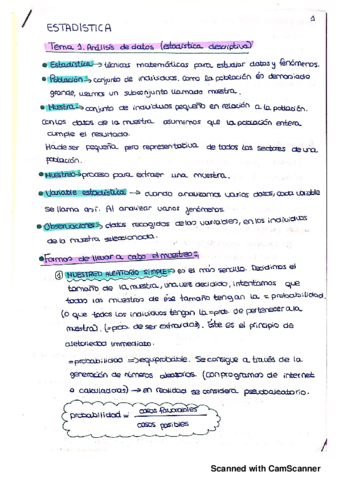 1
ESTADÍSTICA
Tema 1. Análisis de datos (estadística descriptiva)
• Estadística → técnicas matemáticas para estudiar datos y fenómenos.
• Población → conjunto de individuos, como la población es demasiado
grande, usamos un subconjunto llamado muestra.
• Muestra → conjunto de individuos pequeño en relación a la población.
Con los datos de la muestra asumimos que la población entera
cumple el resultado.
Ha de ser pequeña pero representativa de todos los sectores de una
población.
• Muestreo → proceso para extraer una muestra.
• Variable estadística → cuando analizamos varios datos, cada variable
se llama así. Al analizar varios fenómenos.
• Observaciones → datos recogidos de las variables, en los individuos
de la muestra seleccionada.
• Formas de llevar a cabo el muestreo:
① MUESTREO ALEATORIO SIMPLE → es el más sencillo. Decidimos el
tamaño de la muestra, una vez decidido, intentamos que
todas las muestras de ese tamaño tengan la = probabilidad.
(o que todos los individuos tengan la = prob. de pertenecer a la
muestra). (= prob. de ser extraídas). Este es el principio de
aletoriedad inmediato.
= probabilidad ⇒ equiprobable. Se consigue a través de la
generación de números aleatorios. (con programas de internet
o calculadoras) → en realidad se considera pseudoaleatorio.
probabilidad = casos favorables
casos posibles
Scanned with CamScanner